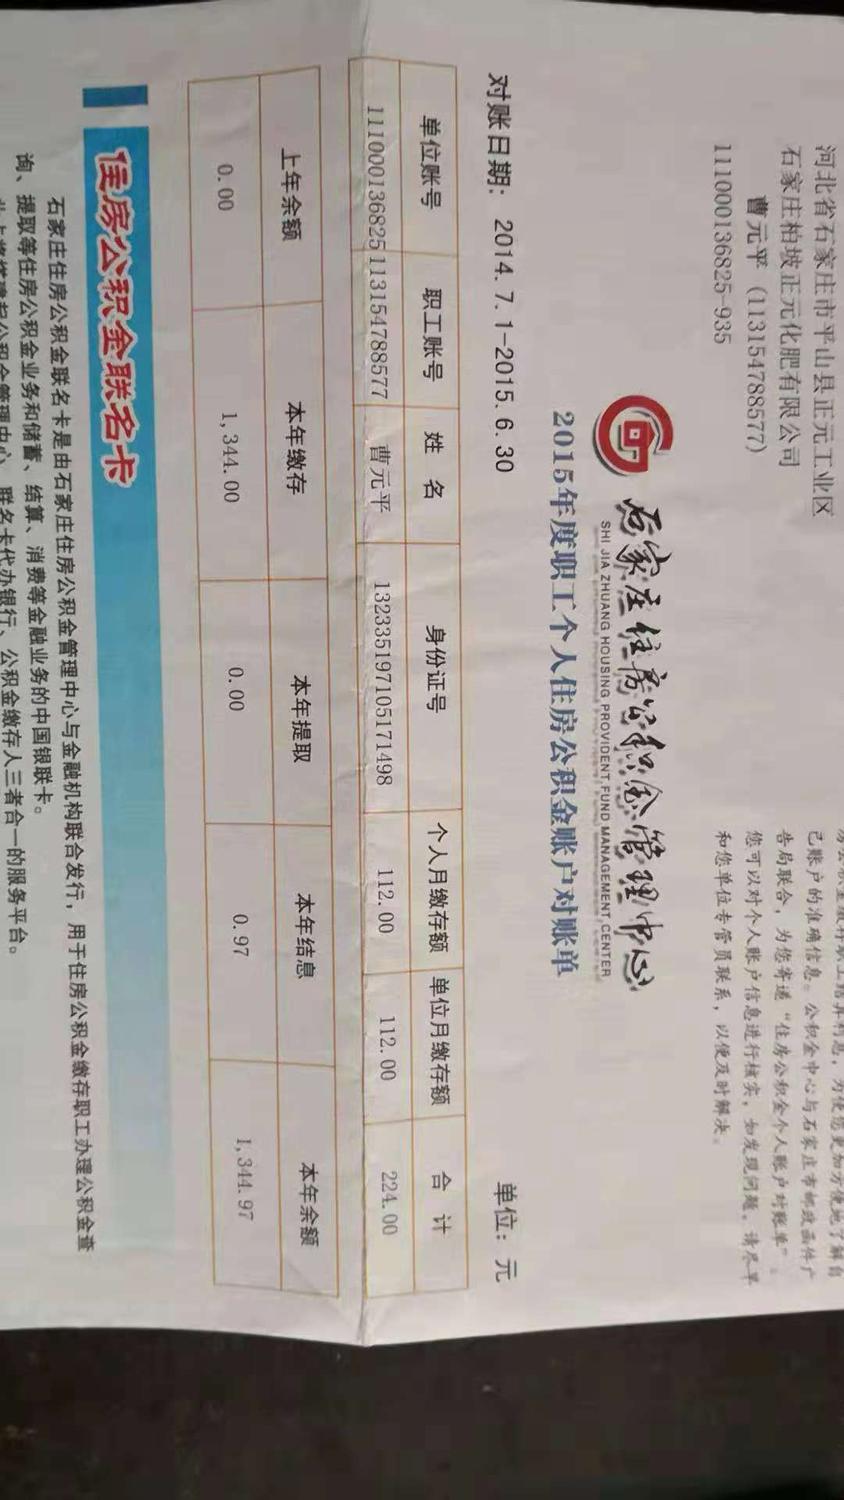 河北省石家庄市平山县正元工业区
石家庄柏坡正元化肥有限公司
曹元平（113154788577）
111000136825-935
己账户的准确信息。公积金中心与石家庄市邮政函件广
告局联合，为您寄递“住房公积金个人账户对账单”。
您可以对个人账户信息进行核实，如发现问题，请尽早
和您单位专管员联系，以便及时解决。
石家庄住房公积金管理中心
SHI JIA ZHUANG HOUSING PROVIDENT FUND MANAGEMENT CENTER
2015年度职工个人住房公积金账户对账单
对账日期： 2014.7.1-2015.6.30 单位：元
单位账号 职工账号 姓 名 身份证号 个人月缴存额 单位月缴存额 合 计
111000136825 113154788577 曹元平 132335197105171498 112.00 112.00 224.00
上年余额 本年缴存 本年提取 本年结息 本年余额
0.00 1,344.00 0.00 0.97 1,344.97
住房公积金联名卡
石家庄住房公积金联名卡是由石家庄住房公积金管理中心与金融机构联合发行，用于住房公积金缴存职工办理公积金查
询、提取等住房公积金业务和储蓄、结算、消费等金融业务的中国银联卡。
公积金管理中心、联名卡代办银行、公积金缴存人三者合一的服务平台。